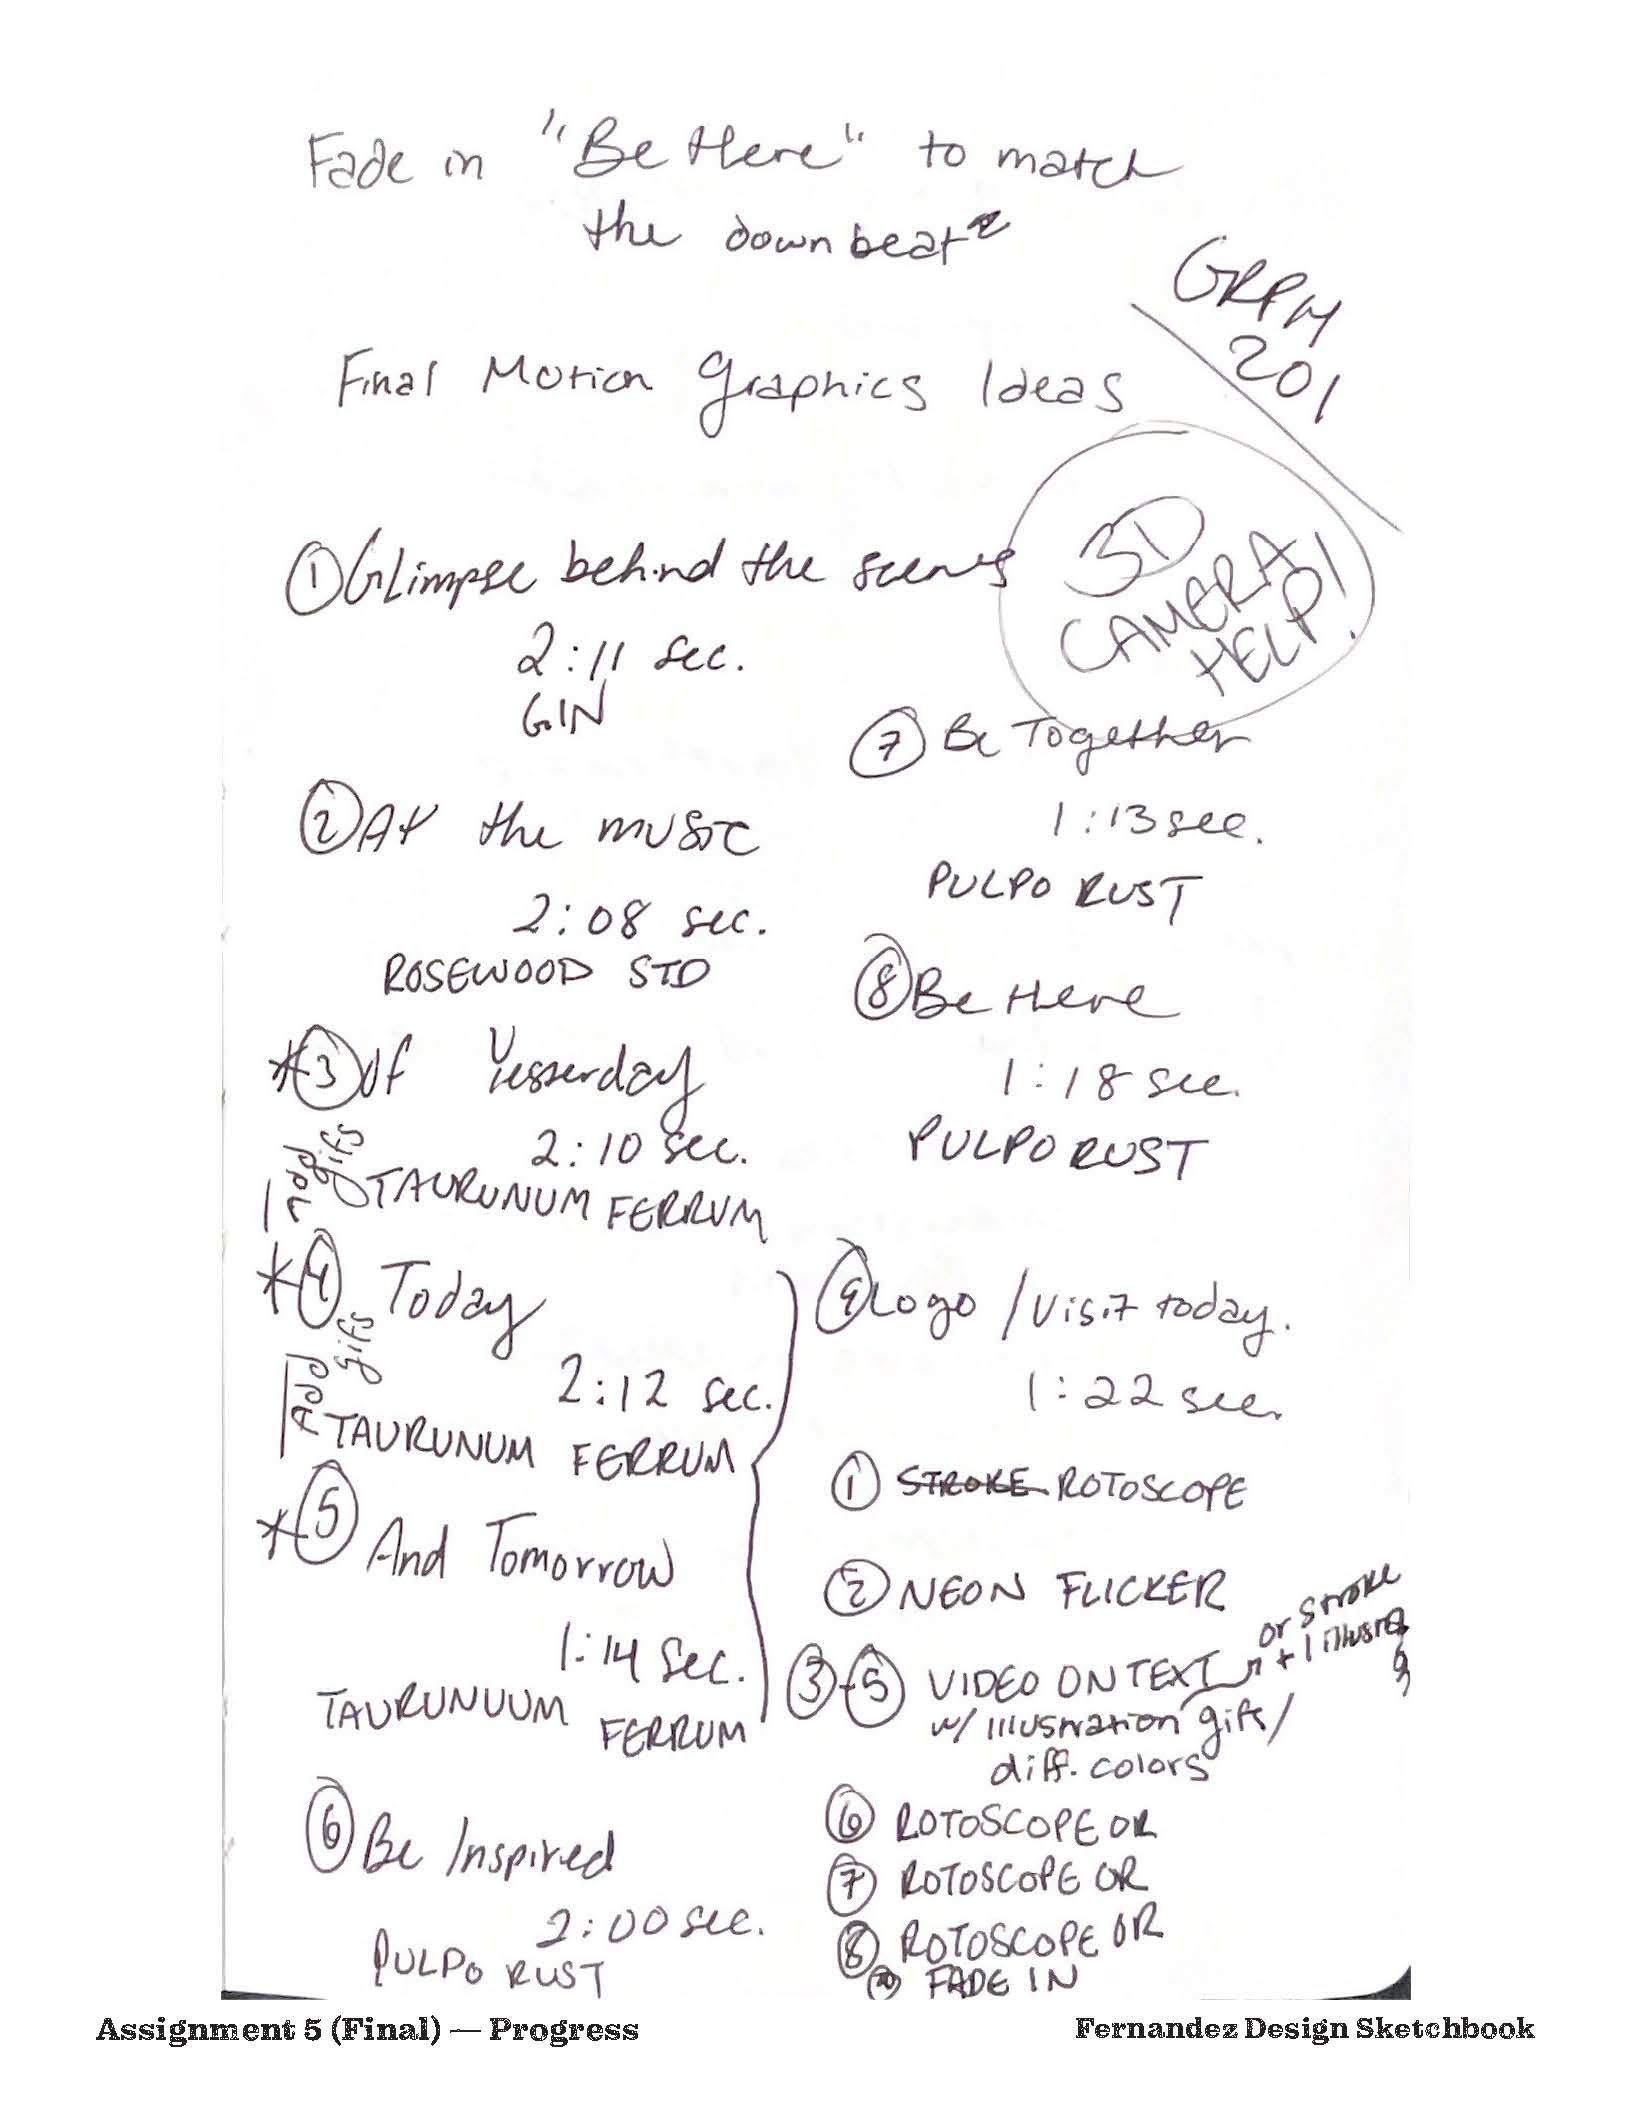 Fade in "Be Here" to match
the downbeat
GRPH
201
Final Motion Graphics Ideas
3D
CAMERA
HELP!
① Glimpse behind the scenes
2:11 sec.
GIN
② At the music
2:08 sec.
ROSEWOOD STD
*③ Of Yesserday
2:10 sec.
Add gifs
TAURUNUM FERRUM
*④ Today
2:12 sec.
Add gifs
TAURUNUM FERRUM
*⑤ And Tomorrow
1:14 sec.
TAURUNUUM FERRUM
⑥ Be Inspired
2:00 sec.
PULPO RUST
⑦ Be Together
1:13 sec.
PULPO RUST
⑧ Be Here
1:18 sec.
PULPO RUST
⑨ Logo / Visit today.
1:22 sec.
① STROKE ROTOSCOPE
② NEON FLICKER
③-⑤ VIDEO ON TEXT or stroke
w/ illustration gifs/ + 1 illustr
diff. colors
⑥ ROTOSCOPE OR
⑦ ROTOSCOPE OR
⑧ ROTOSCOPE OR
FADE IN
Assignment 5 (Final) — Progress
Fernandez Design Sketchbook